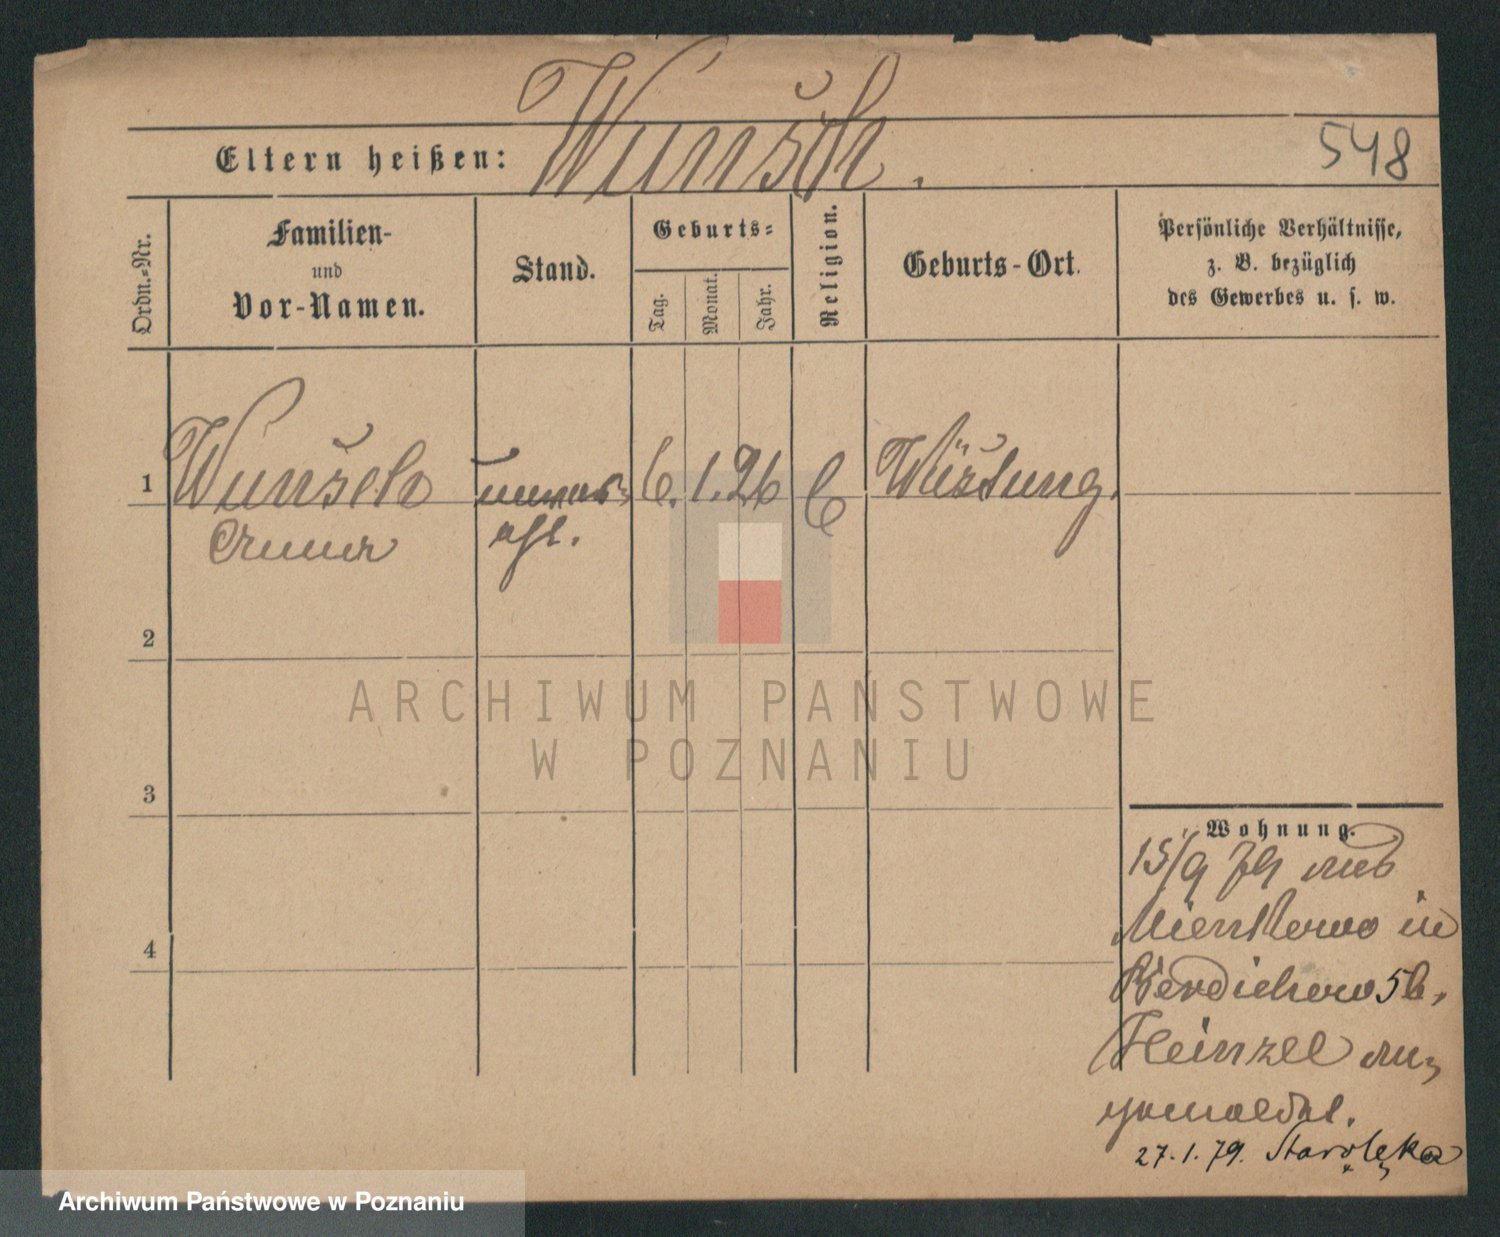 Wunsch.
Eltern heißen:
548
Ordn.-Nr.
Familien-
und
Vor-Namen.
Stand.
Geburts-
Tag.
Monat.
Jahr.
Religion.
Geburts-Ort.
Persönliche Verhältnisse,
z. B. bezüglich
des Gewerbes u. s. w.
1
Wunsch
unver
ehl.
6. 1. 26
Wüstung.
2
ARCHIWUM PAŃSTWOWE
W POZNANIU
3
4
Wohnung.
15/9 79 aus
in
Berdichowo 5b,
Heinzel an
gemeldet.
27.1.79. Starolęka
Archiwum Państwowe w Poznaniu